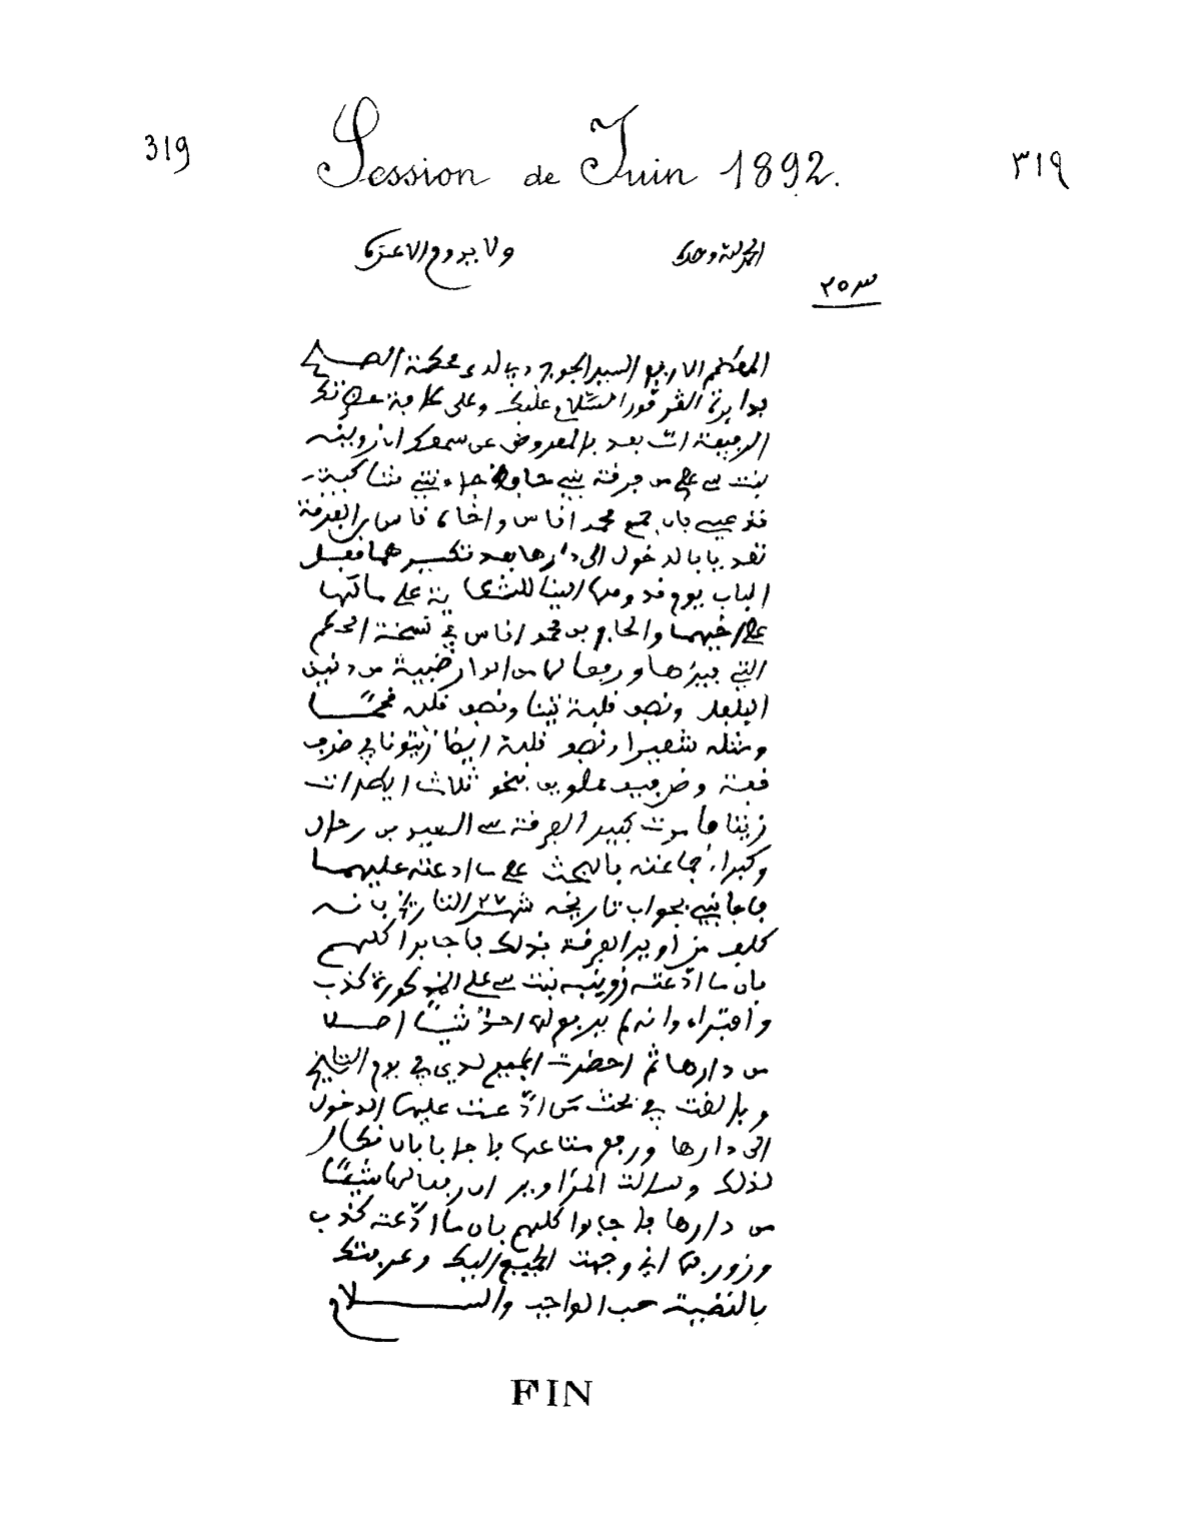 319 Session de Juin 1892. ٣١٩
الحمد لله وحده ولا يدوم الا عزه
٢٥٣
المعظم الارفع السيد الجوج دي لدى محكمة الصلح
بدايرة القرقور السلام عليك وعلى كافة حضرتك
الرفيعة اما بعد فالمعروض عن سمعك ان زوينه
بنت سي علي من فرقة بني حافظ جاءتني متشاكية
فذعيى بان جمع محمد افاس واخاه قاس من الفرقة
تعديا بالدخول الى دارها بعد تكسيرهما قفل
الباب يوم قدومها الينا للشكاية على مالها
على اخيهما والحاج بن محمد افاس في نسخة الحكم
التي بيدها ورفعا لها من الدار قضبية من دنيق
البلغل ونصف قلبة تينا ونصف قلبه قمحًا
ومثله شعيرا ونصف قلبة ايضا زيتونا في ظرف
فعتة وظرفين مملوين بنحو ثلاث ايطرات
زيتا فأمرت كبير الفرقة سي السعيد بن رحال
وكبراء جماعته بالبحث على ما ادعته عليهما
فاجابني بجواب تاريخه ٢٧ شهر التاريخ بانه
كلف مزاوير الفرقة بذلك فأجابوا كلهم
بان ما ادّعته زوينه بنت سي علي المذكورة كذب
وافتراء وانه لم يرفع لها احدٌ شيئًا اصلا
من دارها ثم احضرت الجميع لدي في يوم التاريخ
وبالغت في بحث من ادّعت عليهما الدخول
الى دارها ورفع متاعها فاجابا بانكار
لذلك وسالت المزاوير ان رفعا لها شيئًا
من دارها فاجابوا كلهم بان ما ادّعته كذب
وزور فها اني وجهت الجميع اليك وعرفتك
بالقضية حسب الواجب والسلام
FIN